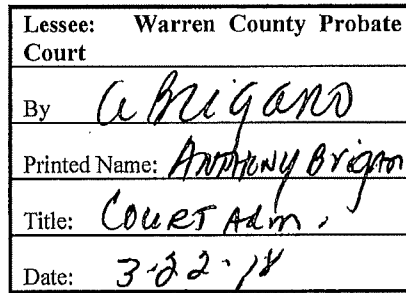 Lessee: Warren County Probate
Court
By A Brigano
Printed Name: Anthony Brigano
Title: Court Adm.
Date: 3-22-18